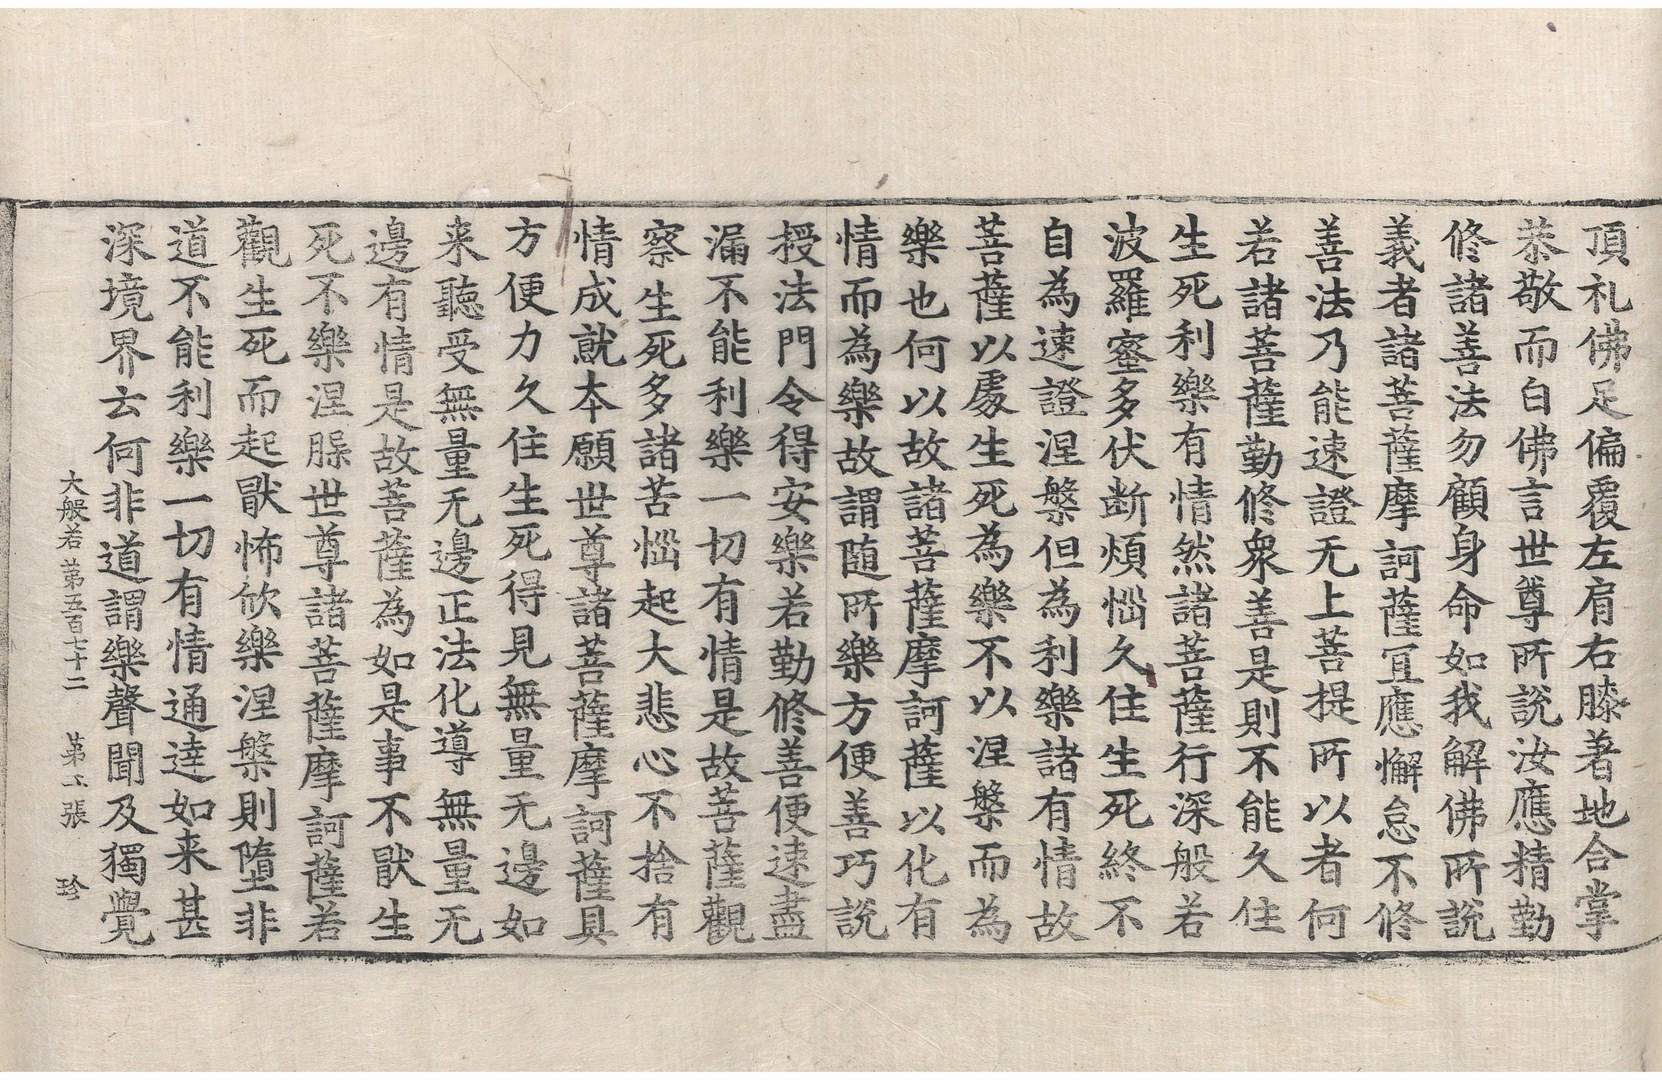 頂礼佛足偏覆左肩右膝著地合掌
恭敬而白佛言世尊所說汝應精勤
修諸善法勿顧身命如我解佛所說
義者諸菩薩摩訶薩冝應懈怠不修
善法乃能速證无上菩提所以者何
若諸菩薩勤修衆善是則不能久住
生死利樂有情然諸菩薩行深般若
波羅蜜多伏断煩惱久住生死終不
自為速證涅槃但為利樂諸有情故
菩薩以處生死為樂不以涅槃而為
樂也何以故諸菩薩摩訶薩以化有
情而為樂故謂随所樂方便善巧說
授法門令得安樂若勤修善便速盡
漏不能利樂一切有情是故菩薩觀
察生死多諸苦惱起大悲心不捨有
情成就本願世尊諸菩薩摩訶薩具
方便力久住生死得見無量无邊如
来聽受無量无邊正法化導無量无
邊有情是故菩薩為如是事不猒生
死不樂涅槃世尊諸菩薩摩訶薩若
觀生死而起猒怖欣樂涅槃則墮非
道不能利樂一切有情通達如来甚
深境界云何非道謂樂聲聞及獨覺
大般若第五百七十二 第二張 珍